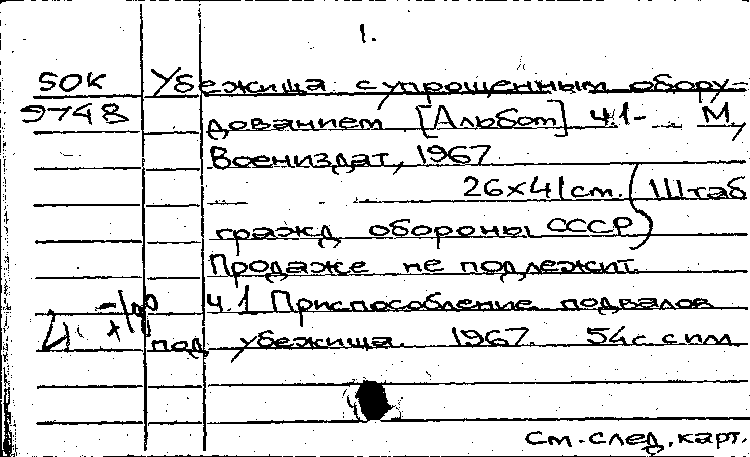 1.
50К Убежища с упрощенным обору-
9748 дованием [Альбом] ч1- М,
Воениздат, 1967
26×41cm. (Штаб
гражд обороны СССР)
Продаже не подлежит.
ч.1 Приспособление подвалов
под убежища. 1967. 54с с илл
См. след. карт.